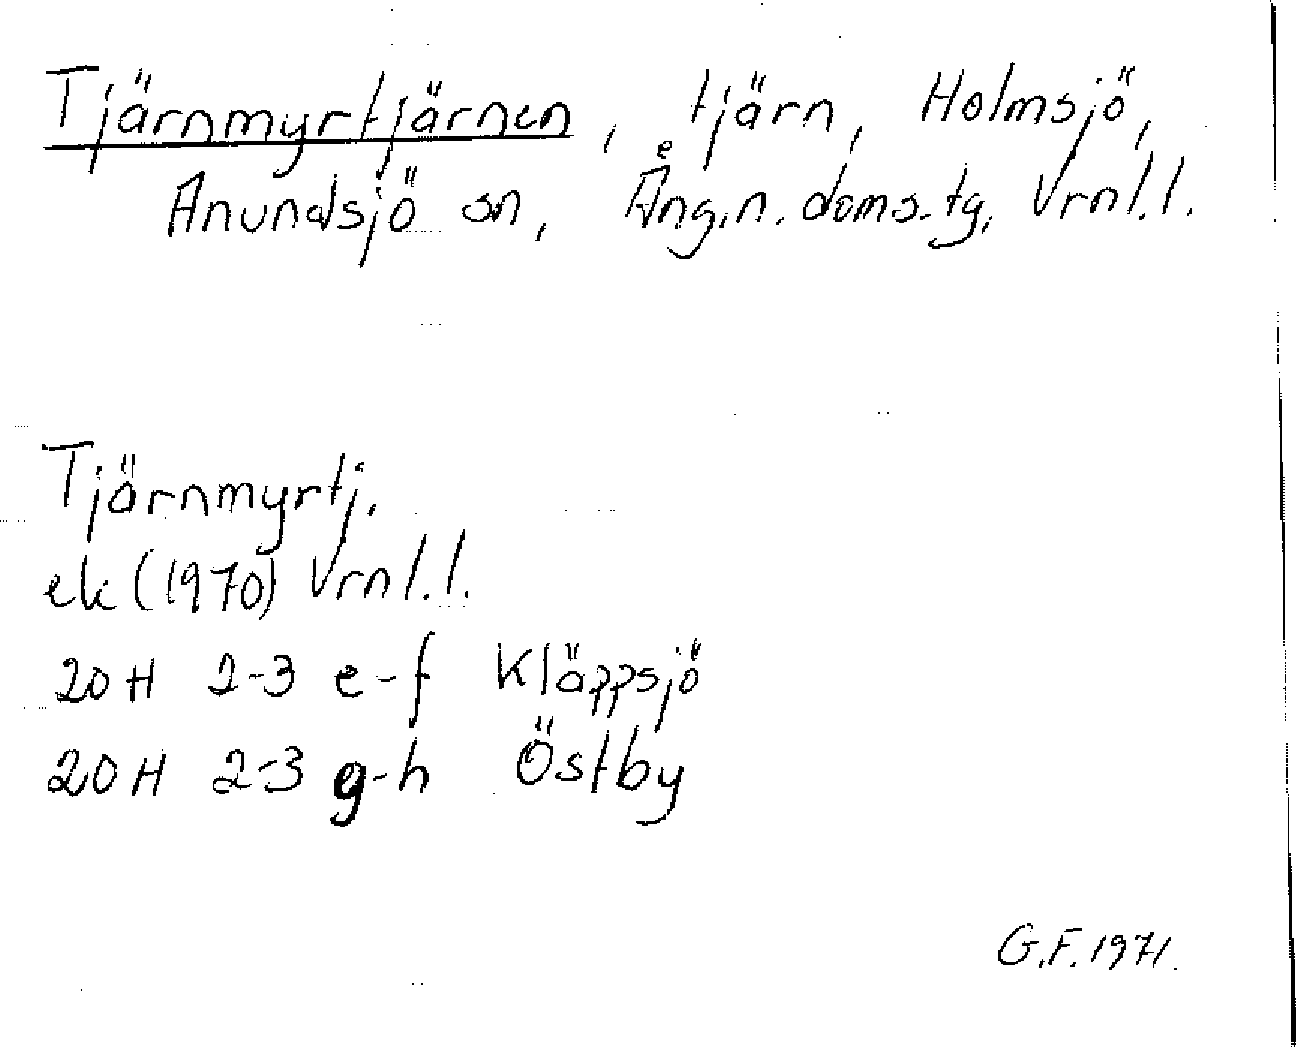 Tjärnmyrtjärnen, tjärn, Holmsjö,
Anundsjö sn, Ång.n. doms.tg, Vrnl.l.
Tjärnmyrtj.
ek (1970) Vrnl.l.
20H 2-3 e-f Kläppsjö
20H 2-3 g-h Östby
G.F. 1971.